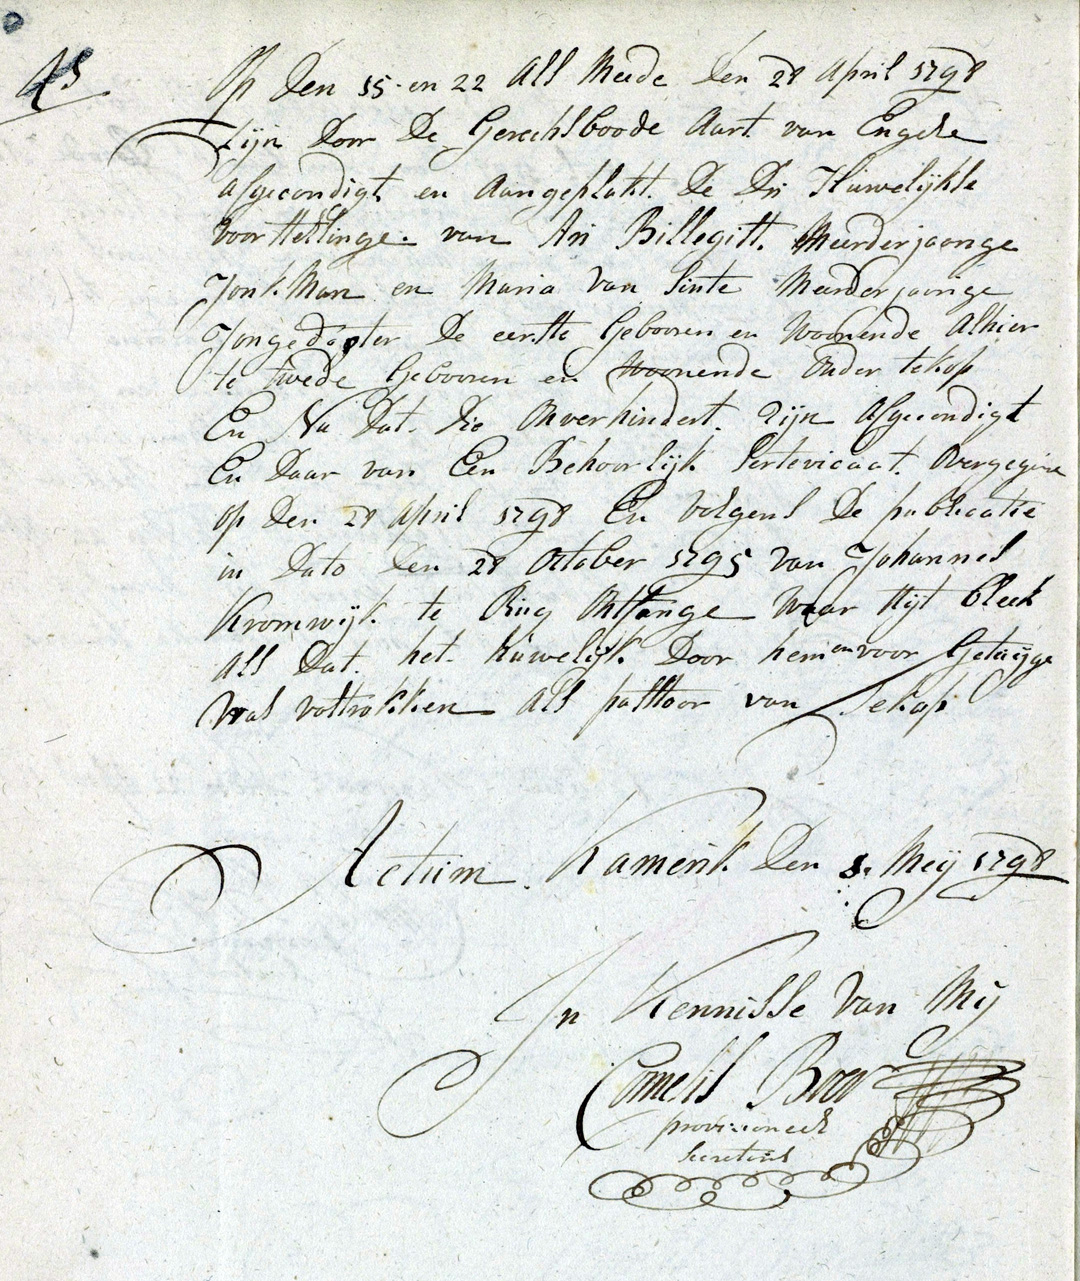 45
Op Den 15 en 22 als Meede den 28 April 1798
Zijn Door De Gerechsboode Aart van Engele
afgecondigt en Aangeplakt De Dri Huwelijkse
voorstellinge van Ari Billegitt Meerderjaarige
Jonk Man en Maria van Sinte Meerderjaarige
Jongedogter De eerste Gebooren en Woonende Alhier
te twede Gebooren en Woonende onder tekop
En Na Dat Die Onverhindert Zijn Afgecondigt
En Daar van Een Behoorlijk Sertevicaat Overgegeve
op Den 28 April 1798 En volgens De publicatie
in Dato Den 28 October 1795 van Johannes
Kromwijk te Rug Ontfange Waar Uijt bleek
als Dat het Huwelijk Door hem en voor Getuijge
Was voltrokken als pastoor van Tekop
Actum Kamerik Den 1 Meij 1798
In Kennisse van Mij
Cornelis Boer
provisioneel
secretaris